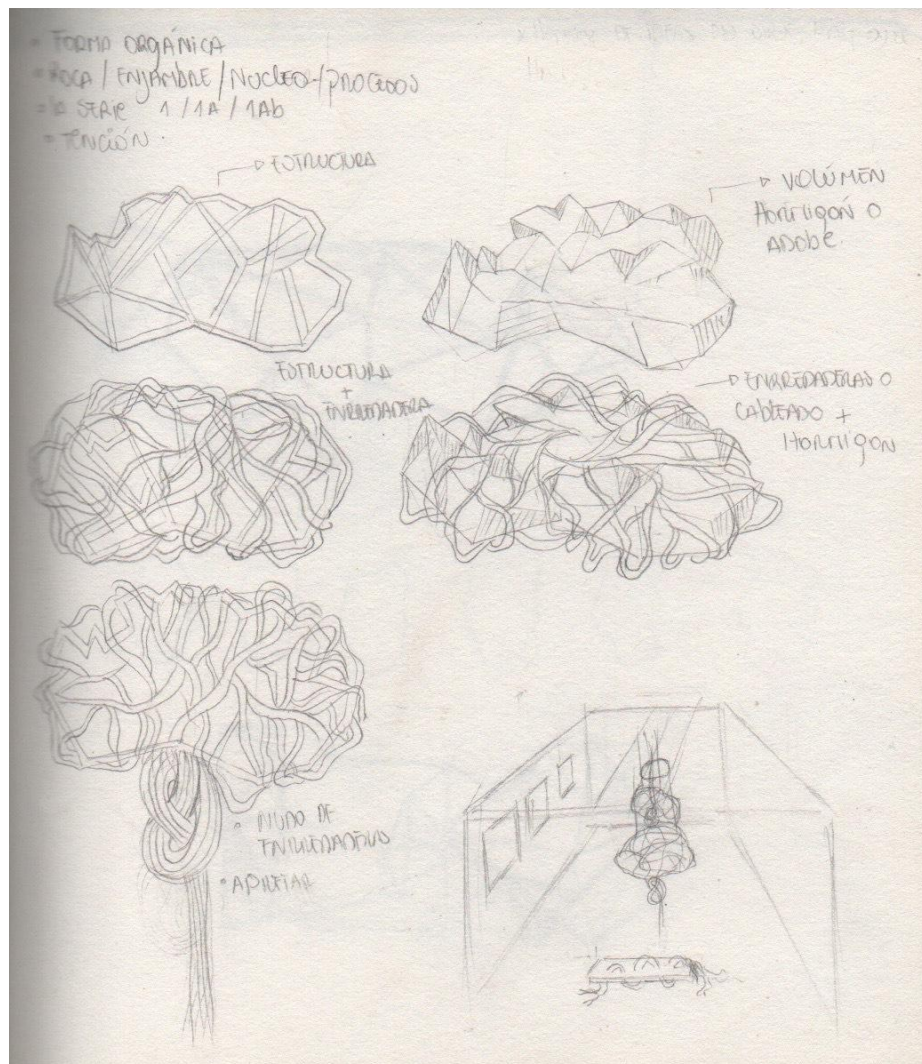 • FORMA ORGÁNICA
• ROCA / ENJAMBRE / NUCLEO / PROCESOS
SERIE 1 / 1A / 1Ab
• TENCIÓN.
ESTRUCTURA
VOLÚMEN
HORMIGÓN O
ADOBE.
ESTRUCTURA
+
ENRREDADERA
ENRREDADERAS O
CABLEADO +
HORMIGON
• NUDO DE
ENRREDADERAS
• APRETAR